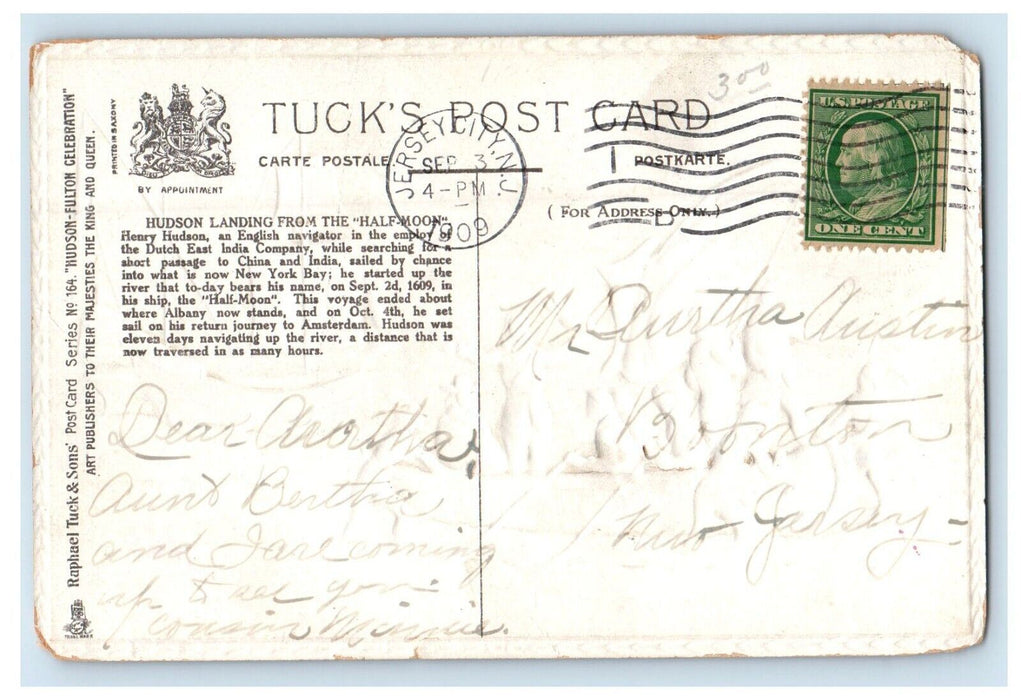 Raphael Tuck & Sons' Post Card Series No 164. "HUDSON-FULTON CELEBRATION"
ART PUBLISHERS TO THEIR MAJESTIES THE KING AND QUEEN.
TRADE MARK
PRINTED IN SAXONY
BY APPOINTMENT
TUCK'S POST CARD
CARTE POSTALE
POSTKARTE.
(FOR ADDRESS ONLY.)
300
JERSEY CITY, N.J.
SEP 3
4-PM
1909
1
D
U.S. POSTAGE
ONE CENT
HUDSON LANDING FROM THE "HALF-MOON".
Henry Hudson, an English navigator in the employ of
the Dutch East India Company, while searching for a
short passage to China and India, sailed by chance
into what is now New York Bay; he started up the
river that to-day bears his name, on Sept. 2d, 1609, in
his ship, the "Half-Moon". This voyage ended about
where Albany now stands, and on Oct. 4th, he set
sail on his return journey to Amsterdam. Hudson was
eleven days navigating up the river, a distance that is
now traversed in as many hours.
Dear
Aunt Bertha
and I are coming
up to see you
cousin Minnie.
Austin
Boonton
New Jersey